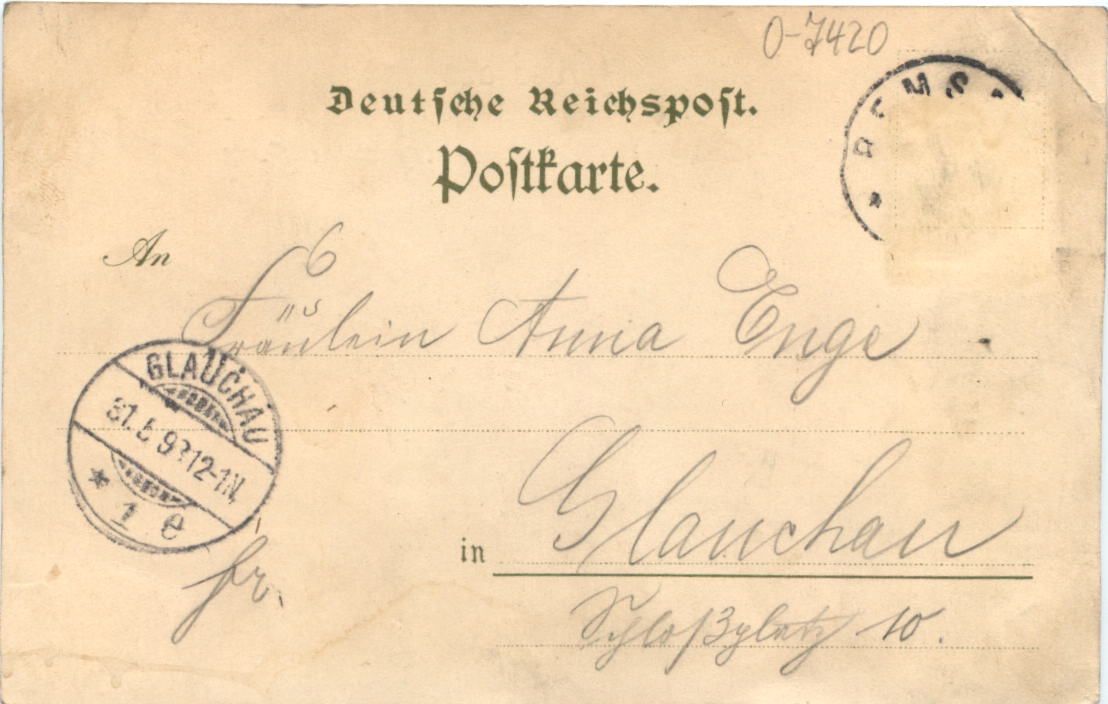 0-7420
Deutsche Reichspost.
Postkarte.
REMS
An
Fräulein Anna Enge
GLAUCHAU
12-1N.
* 1 e
in Glauchau
fr.
Schloßplatz 10.